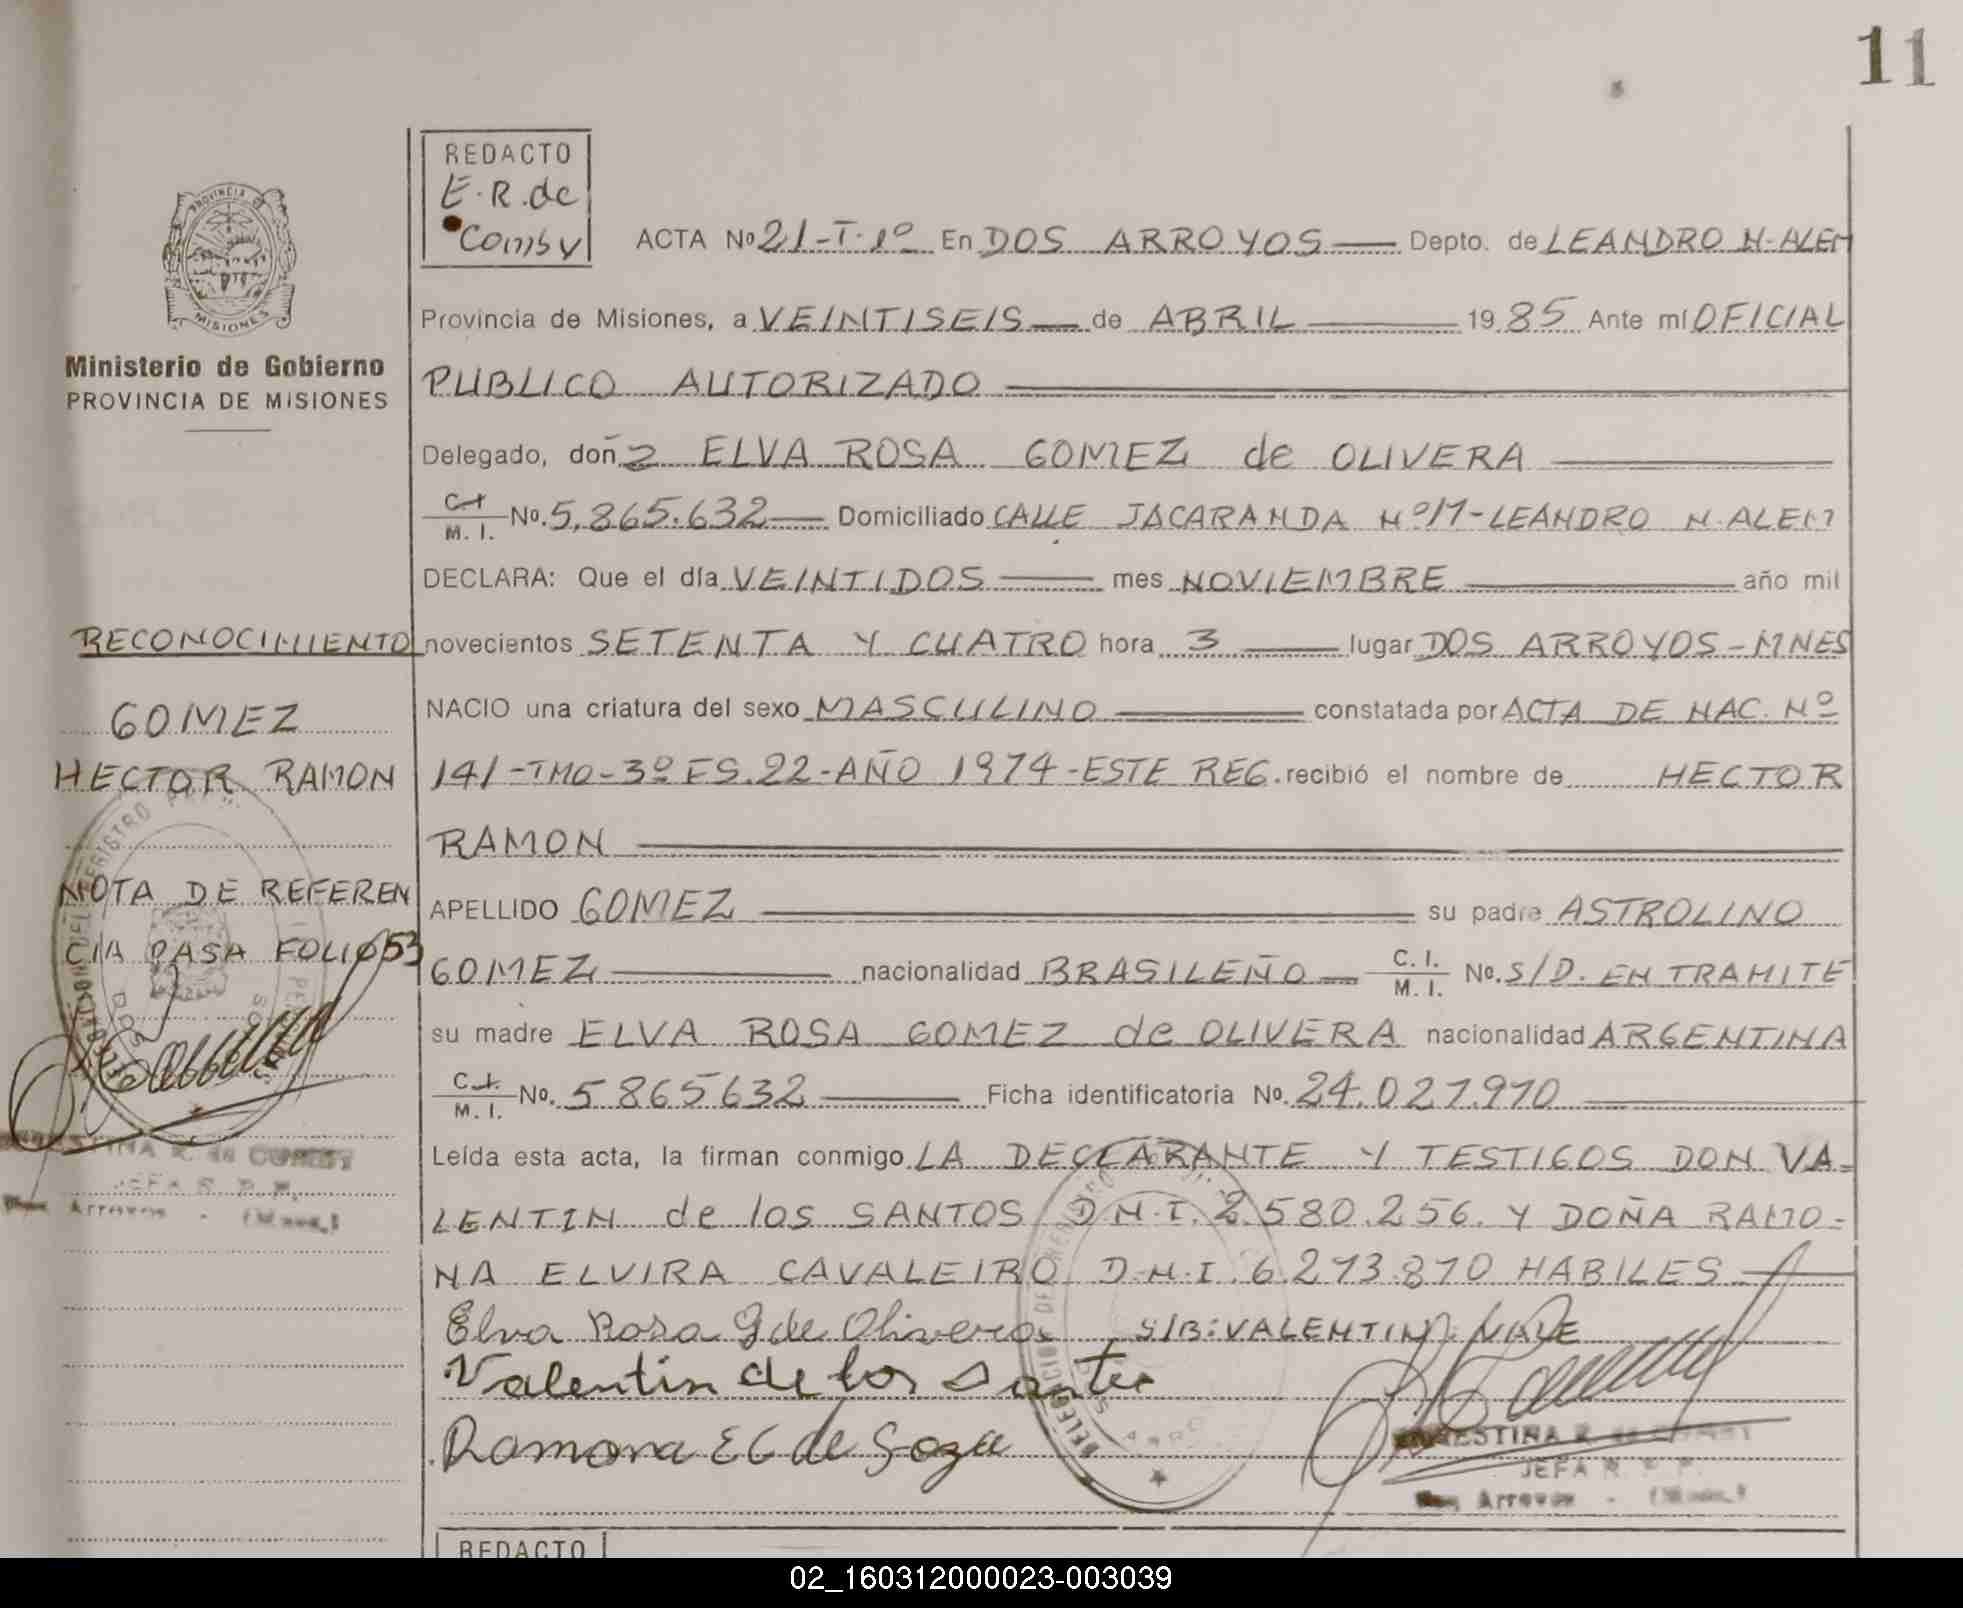 11
REDACTO
E.R. de
Comby
ACTA No 21-T.1º En DOS ARROYOS Depto. de LEANDRO N-ALEM
Provincia de Misiones, a VEINTISEIS de ABRIL 1985 Ante mí OFICIAL
PUBLICO AUTORIZADO
PROVINCIA DE
MISIONES
Ministerio de Gobierno
PROVINCIA DE MISIONES
Delegado, doña ELVA ROSA GOMEZ de OLIVERA
C.I. M. I. No. 5.865.632 Domiciliado CALLE JACARANDA Nº17-LEANDRO N.ALEM
DECLARA: Que el día VEINTIDOS mes NOVIEMBRE año mil
novecientos SETENTA Y CUATRO hora 3 lugar DOS ARROYOS-MNES
NACIO una criatura del sexo MASCULINO constatada por ACTA DE NAC. Nº
141-TMO-3º FS.22-AÑO 1974-ESTE REG. recibió el nombre de HECTOR
RAMON
APELLIDO GOMEZ su padre ASTROLINO
GOMEZ nacionalidad BRASILEÑO C. I. M. I. No. S/D. EN TRAMITE
su madre ELVA ROSA GOMEZ de OLIVERA nacionalidad ARGENTINA
C.I. M. I. No. 5865632 Ficha identificatoria No. 24.027.970
Leída esta acta, la firman conmigo LA DECLARANTE Y TESTIGOS DON VA=
LENTIN de los SANTOS D.N.I. 2.580.256. Y DOÑA RAMO-
NA ELVIRA CAVALEIRO D.N.I. 6.273.870 HABILES
Elva Rosa G de Olivera S/B: VALENTIN. VALE
Valentin de los Santos
Ramona E C de Soza
RECONOCIMIENTO
GOMEZ
HECTOR RAMON
NOTA DE REFEREN
CIA PASA FOLIO 53
ERNESTINA R. de COMBY
JEFA R. P. P.
Dos Arroyos - (Mnes.)
ERNESTINA R. de COMBY
JEFA R. P. P.
Dos Arroyos - (Mnes.)
REDACTO
02_160312000023-003039